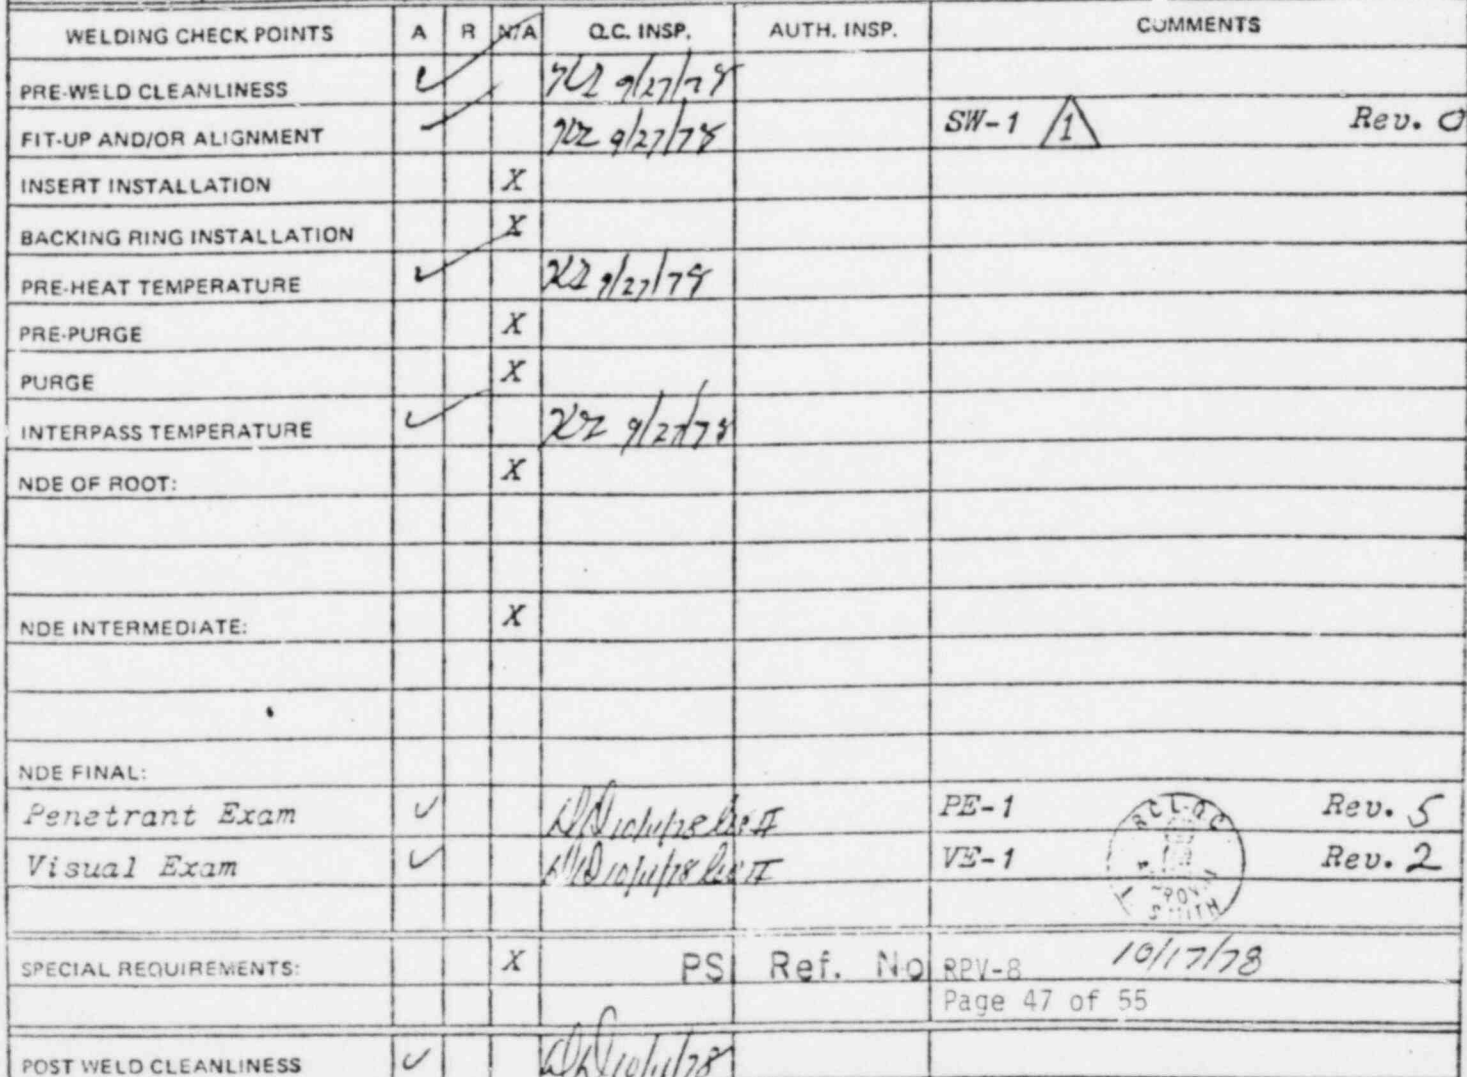 WELDING CHECK POINTS A R N/A Q.C. INSP. AUTH. INSP. COMMENTS
PRE-WELD CLEANLINESS ✓ 9/27/78
FIT-UP AND/OR ALIGNMENT ✓ 9/27/78 SW-1 1 Rev. 0
INSERT INSTALLATION X
BACKING RING INSTALLATION X
PRE-HEAT TEMPERATURE ✓ 9/27/78
PRE-PURGE X
PURGE X
INTERPASS TEMPERATURE ✓ 9/27/78
NDE OF ROOT: X
NDE INTERMEDIATE: X
NDE FINAL:
Penetrant Exam ✓ 10/11/78 PE-1 Rev. 5
Visual Exam ✓ 10/11/78 VE-1 Rev. 2
RCI-QC
SMITH
SPECIAL REQUIREMENTS: X PS Ref. No RPV-8 10/17/78
Page 47 of 55
POST WELD CLEANLINESS ✓ 10/11/78